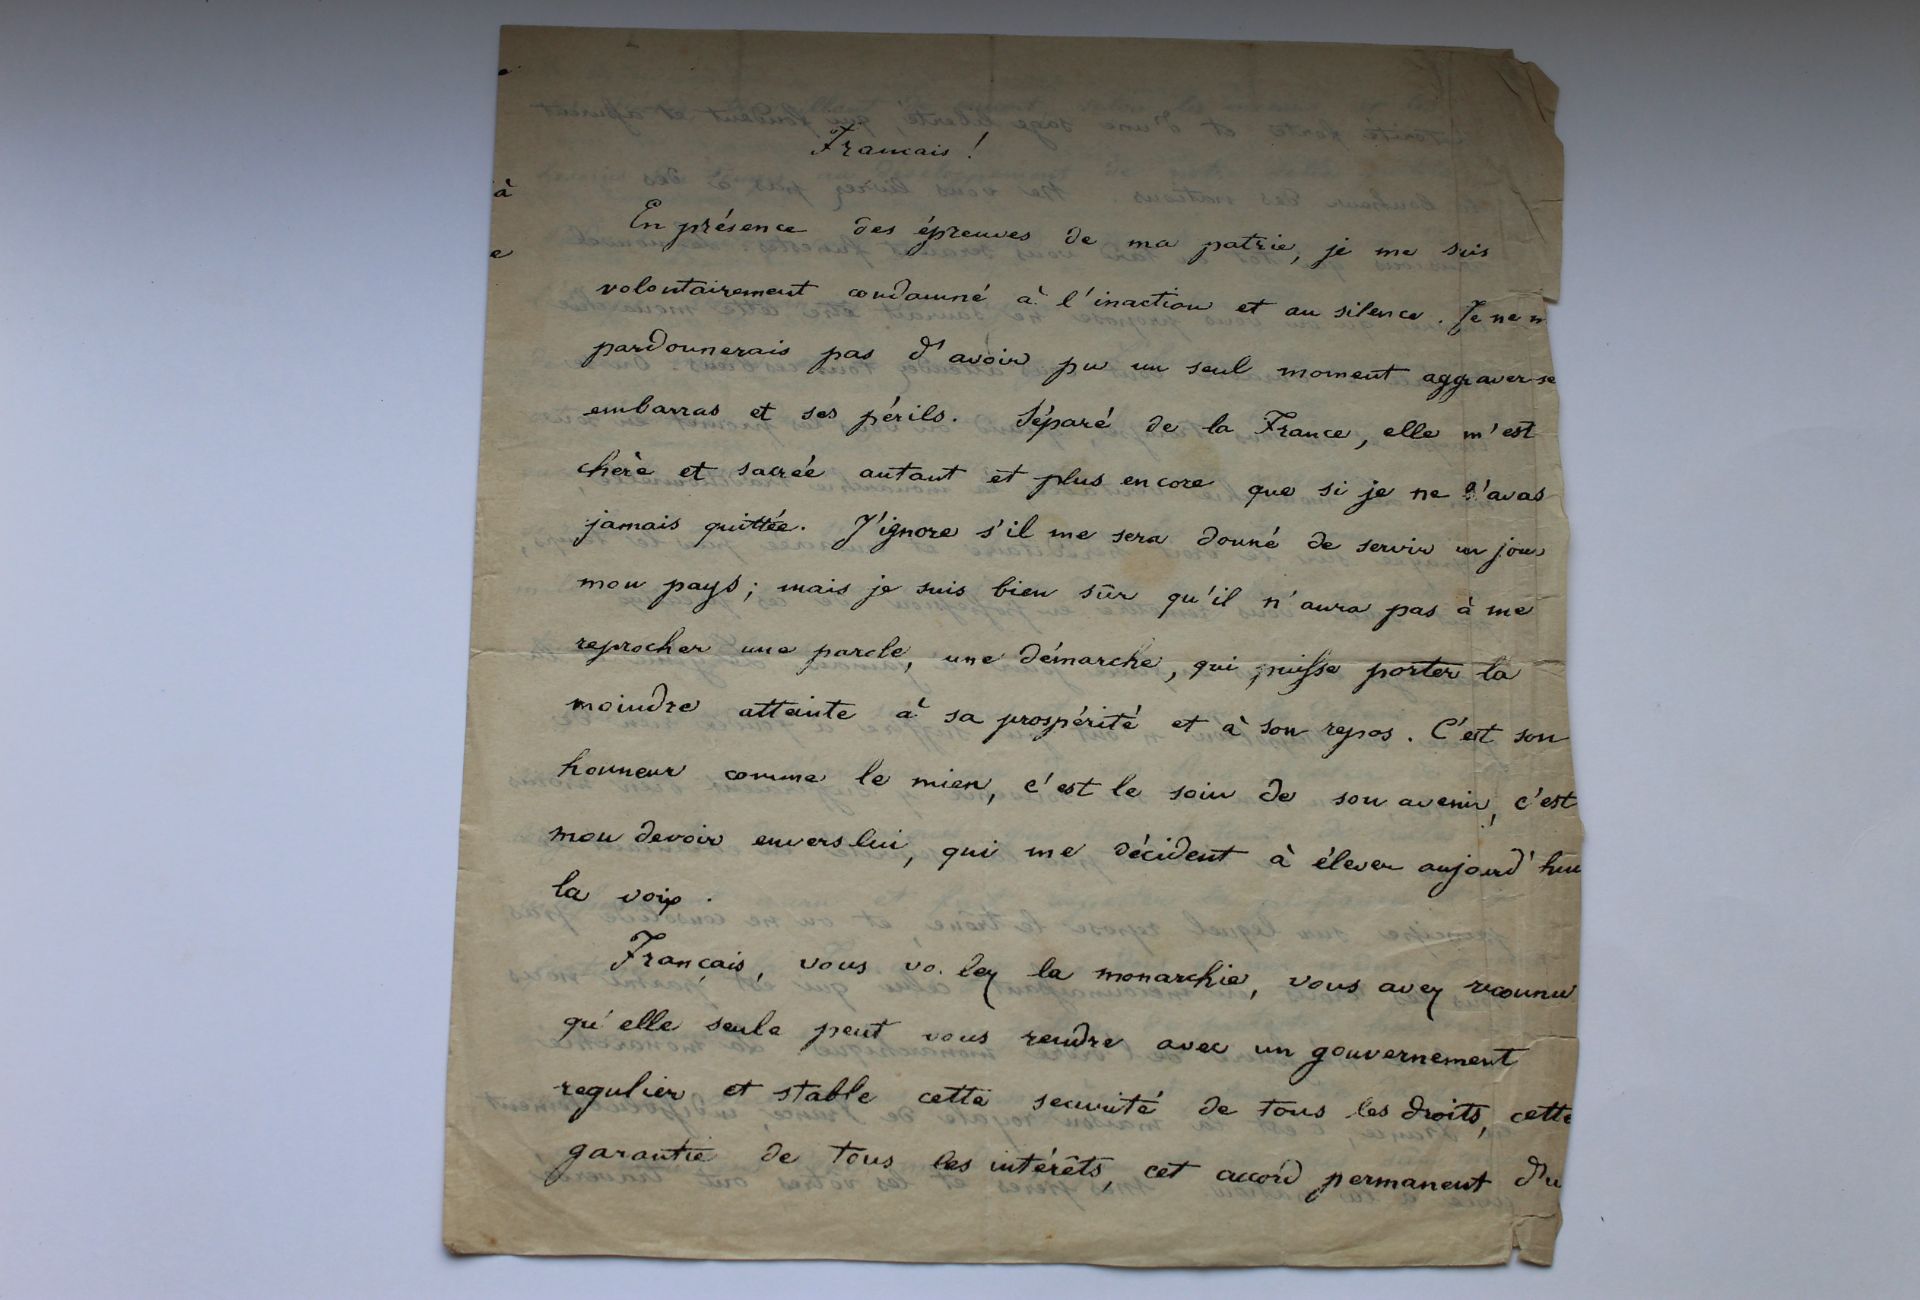 Francais !
En présence des épreuves de ma patrie, je me suis
volontairement condamné à l'inaction et au silence. Je ne m
pardonnerais pas d'avoir pu un seul moment aggraver se
embarras et ses périls. Séparé de la France, elle m'est
chère et sacrée autant et plus encore que si je ne l'avas
jamais quittée. J'ignore s'il me sera donné de servir un jour
mon pays ; mais je suis bien sûr qu'il n'aura pas à me
reprocher une parole, une démarche, qui puisse porter la
moindre atteinte à sa prospérité et à son repos. C'est son
honneur comme le mien, c'est le soin de son avenir, c'est
mon devoir envers lui, qui me décident à élever aujourd'hui
la voix.
Français, vous vo.lez la monarchie, vous avez reconnu
qu'elle seule peut vous rendre avec un gouvernement
regulier et stable cette securité de tous les droits, cette
garantie de tous les intérêts, cet accord permanent d'u
à
e